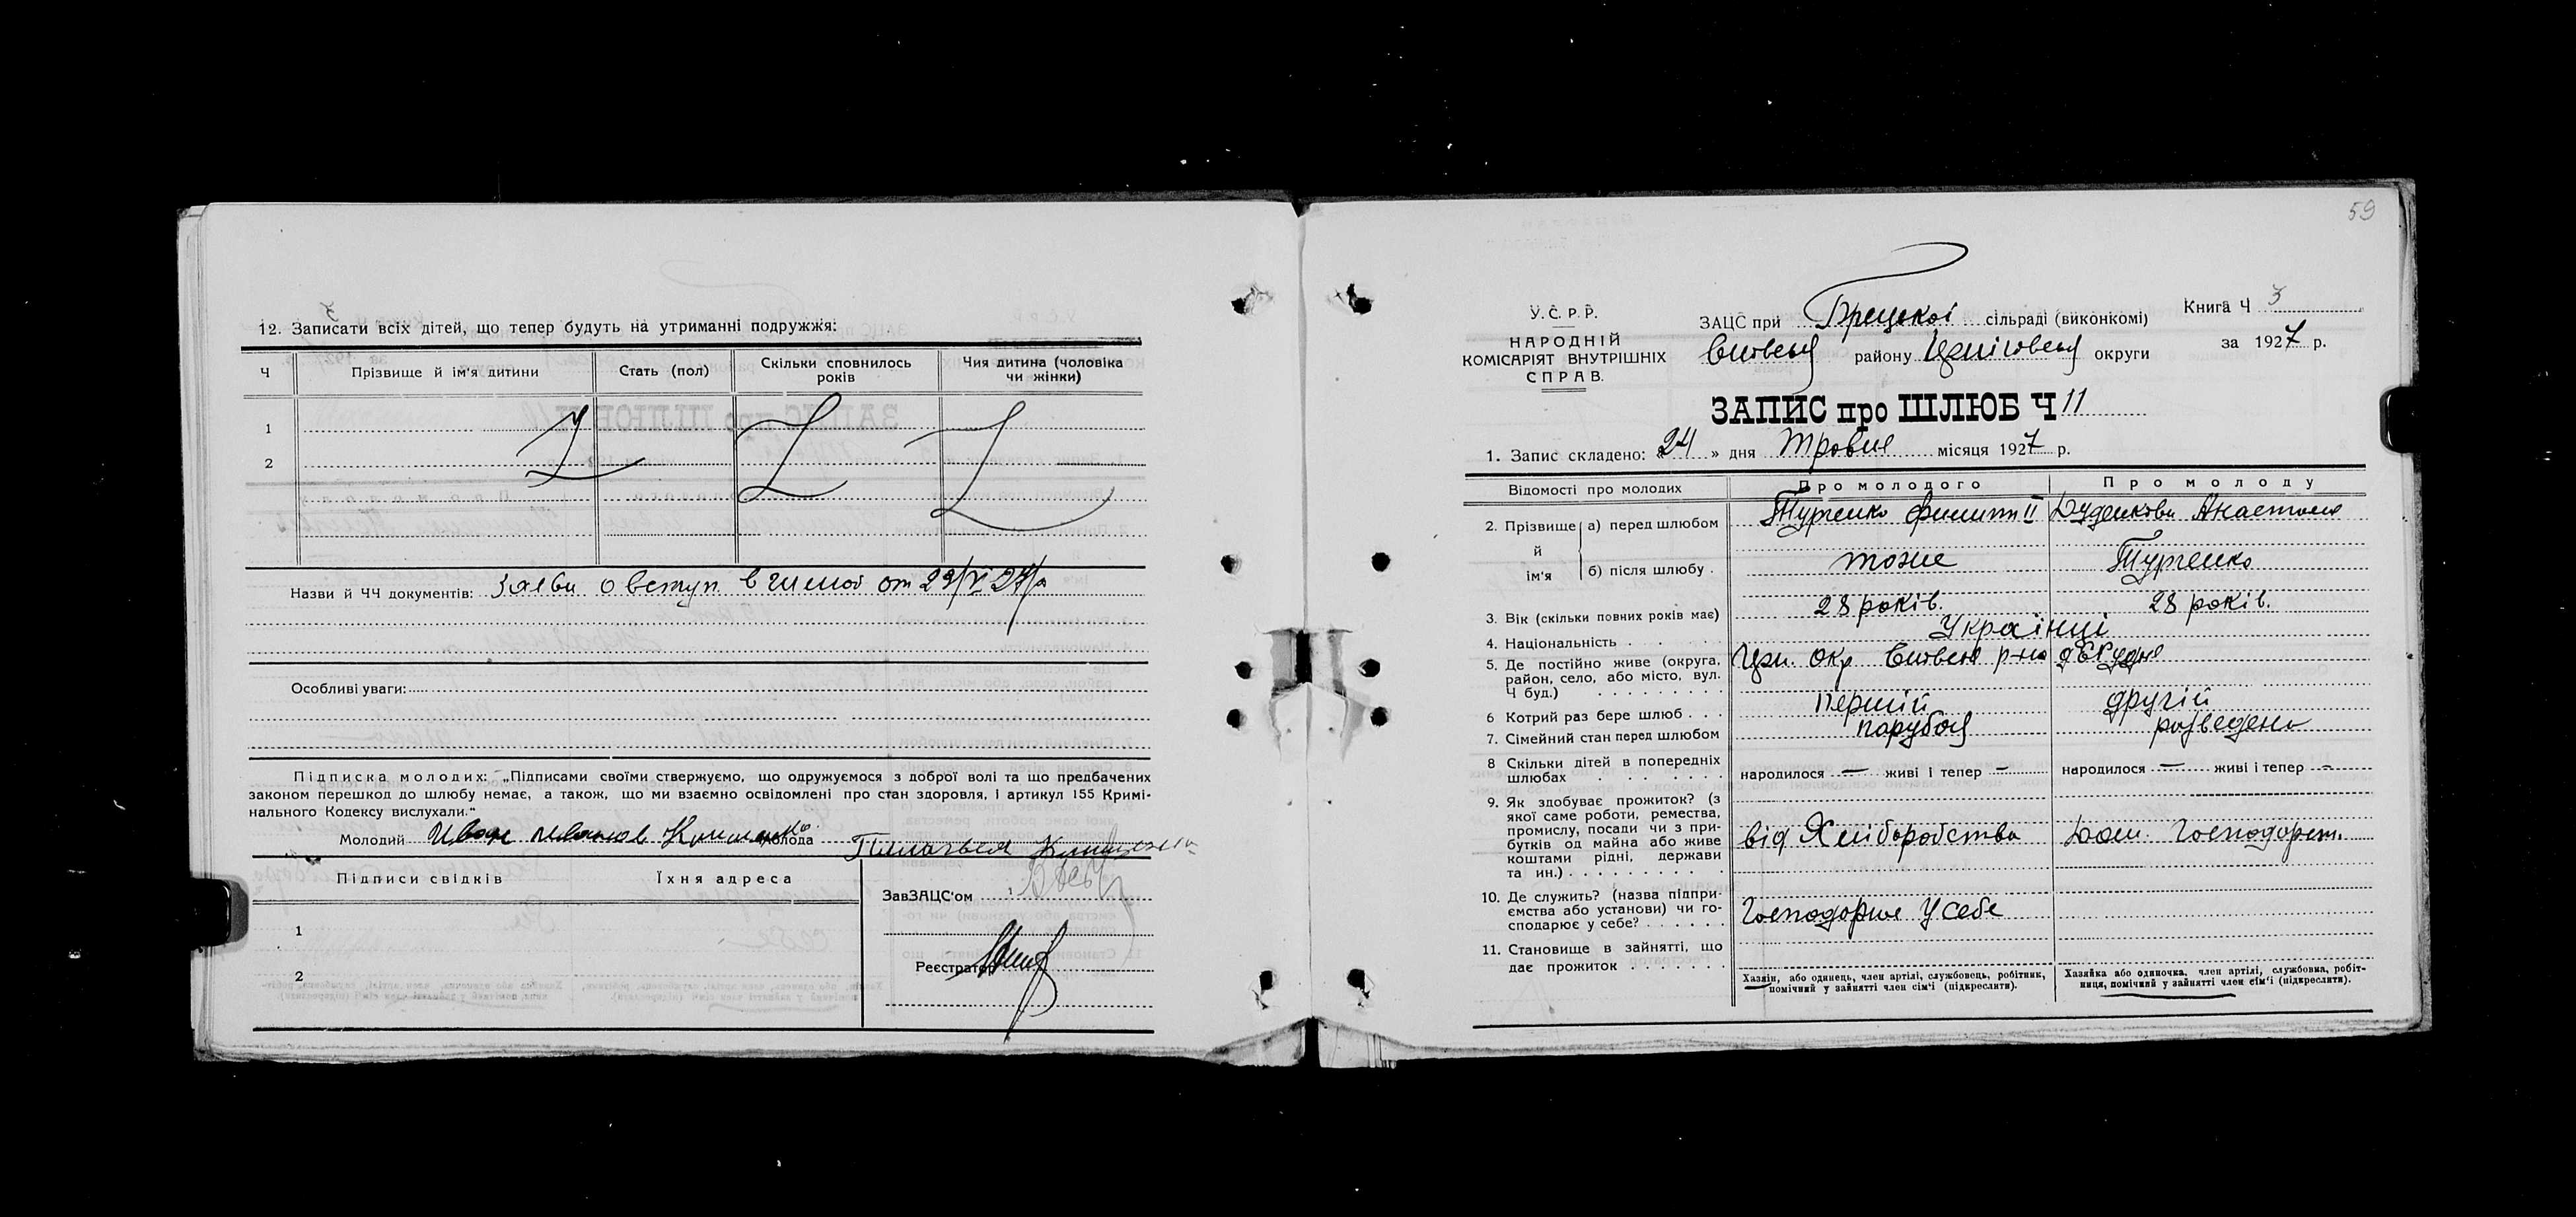 12. Записати всіх дітей, що тепер будуть на утриманні подружжя:
Ч
Прізвище й ім'я дитини
Стать (пол)
Скільки сповнилось років
Чия дитина (чоловіка чи жінки)
1
2
Назви й ЧЧ документів: о вступ. в от 29/VI 27/р
Особливі уваги:
Підписка молодих: „Підписами своїми стверджуємо, що одружуємося з доброї волі та що предбачених
законом перешкод до шлюбу немає, а також, що ми взаємно освідомлені про стан здоровля, і артикул 155 Кримі-
нального Кодексу вислухали."
Молодий Иван молода
Підписи свідків
Їхня адреса
1
2
ЗавЗАЦС'ом
Реєстратор
59
У.С.Р.Р.
НАРОДНІЙ
КОМІСАРІЯТ ВНУТРІШНІХ
СПРАВ.
ЗАЦС при сільраді (виконкомі)
району округи
Книга Ч 3
за 1927 р.
ЗАПИС про ШЛЮБ Ч 11
1. Запис складено: „24" дня Травня місяця 1927 р.
Відомості про молодих
Про молодого
Про молоду
2. Прізвище й ім'я
а) перед шлюбом
б) після шлюбу .
тоже
3. Вік (скільки повних років має)
28 років.
28 років.
4. Національність . .
Українці
5. Де постійно живе (округа,
район, село, або місто, вул.
Ч буд.) . . . . . . . . .
окр р-на
6 Котрий раз бере шлюб . . .
Перший
другій
7. Сімейний стан перед шлюбом
парубок
розведена
8 Скільки дітей в попередніх
шлюбах . . . . . .
народилося — живі і тепер —
народилося — живі і тепер —
9. Як здобуває прожиток? (з
якої саме роботи, ремества,
промислу, посади чи з при-
бутків од майна або живе
коштами рідні, держави
та ин.) . . . . . . . . . .
від Хліборобства
Дом. Господарст.
10. Де служить? (назва підпри-
ємства або установи) чи го-
сподарює у себе? . . . . . .
у себе
11. Становище в зайнятті, що
дає прожиток . . . . . . .
Хазяін, або одинець, член артілі, службовець, робітник,
помічний у зайнятті член сім'ї (підкреслити).
Хазяйка або одиночка, член артілі, службовка, робіт-
ниця, помічний у зайнятті член сім'ї (підкреслити).